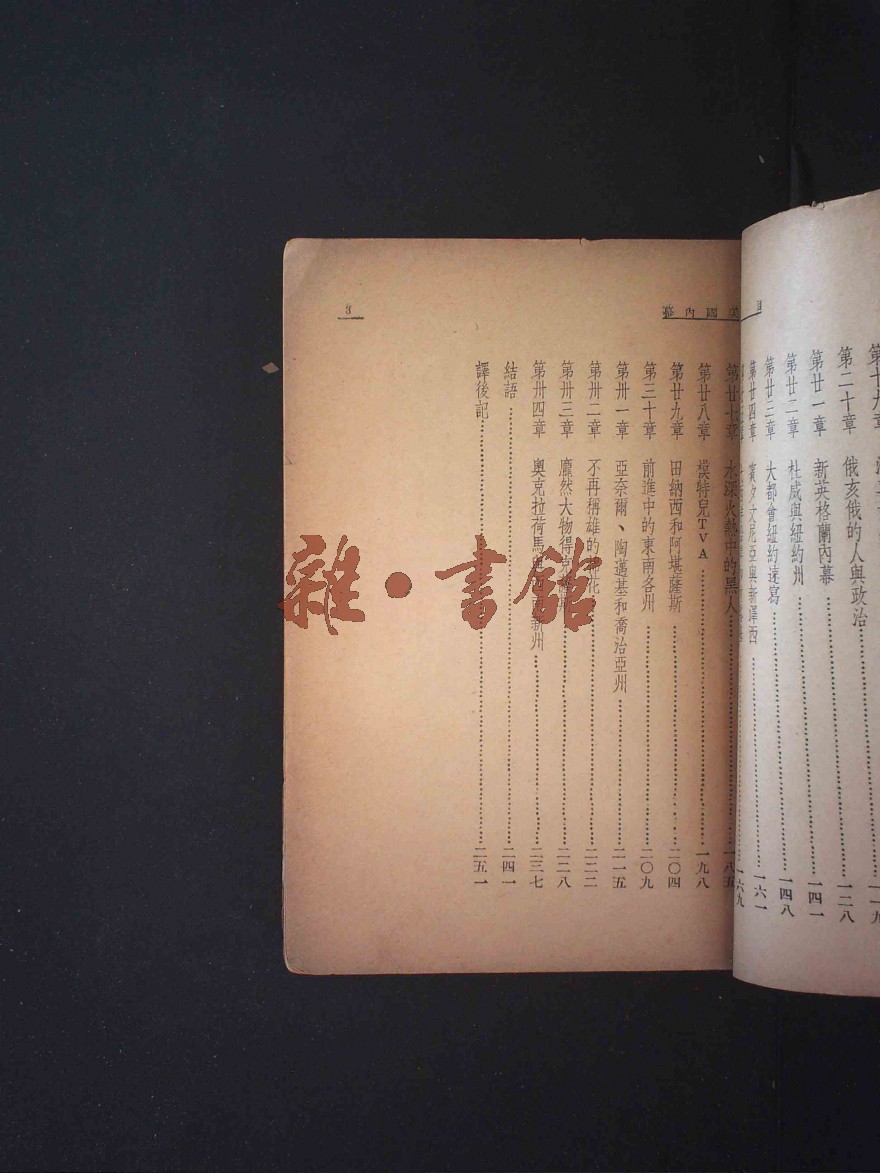 第二十章 俄亥俄的人與政治……一二八
第廿一章 新英格蘭內幕……一四一
第廿二章 杜威與紐約州……一四八
第廿三章 大都會紐約速寫……一六一
第廿四章 賓夕尼亞與新澤西……一六九
美國內幕
3
第廿七章 水深火熱中的黑人……一八五
第廿八章 模特兒TVA……一九八
第廿九章 田納西和阿堪薩斯……二〇四
第三十章 前進中的東南各州……二〇九
第卅一章 亞奈爾、陶邁基和喬治亞州……二一五
第卅二章 不再稱雄的花……二二二
第卅三章 龐然大物得克薩斯……二二八
第卅四章 奧克拉荷馬與兩新州……二三七
結語……二四一
譯後記……二五一
雜·書館